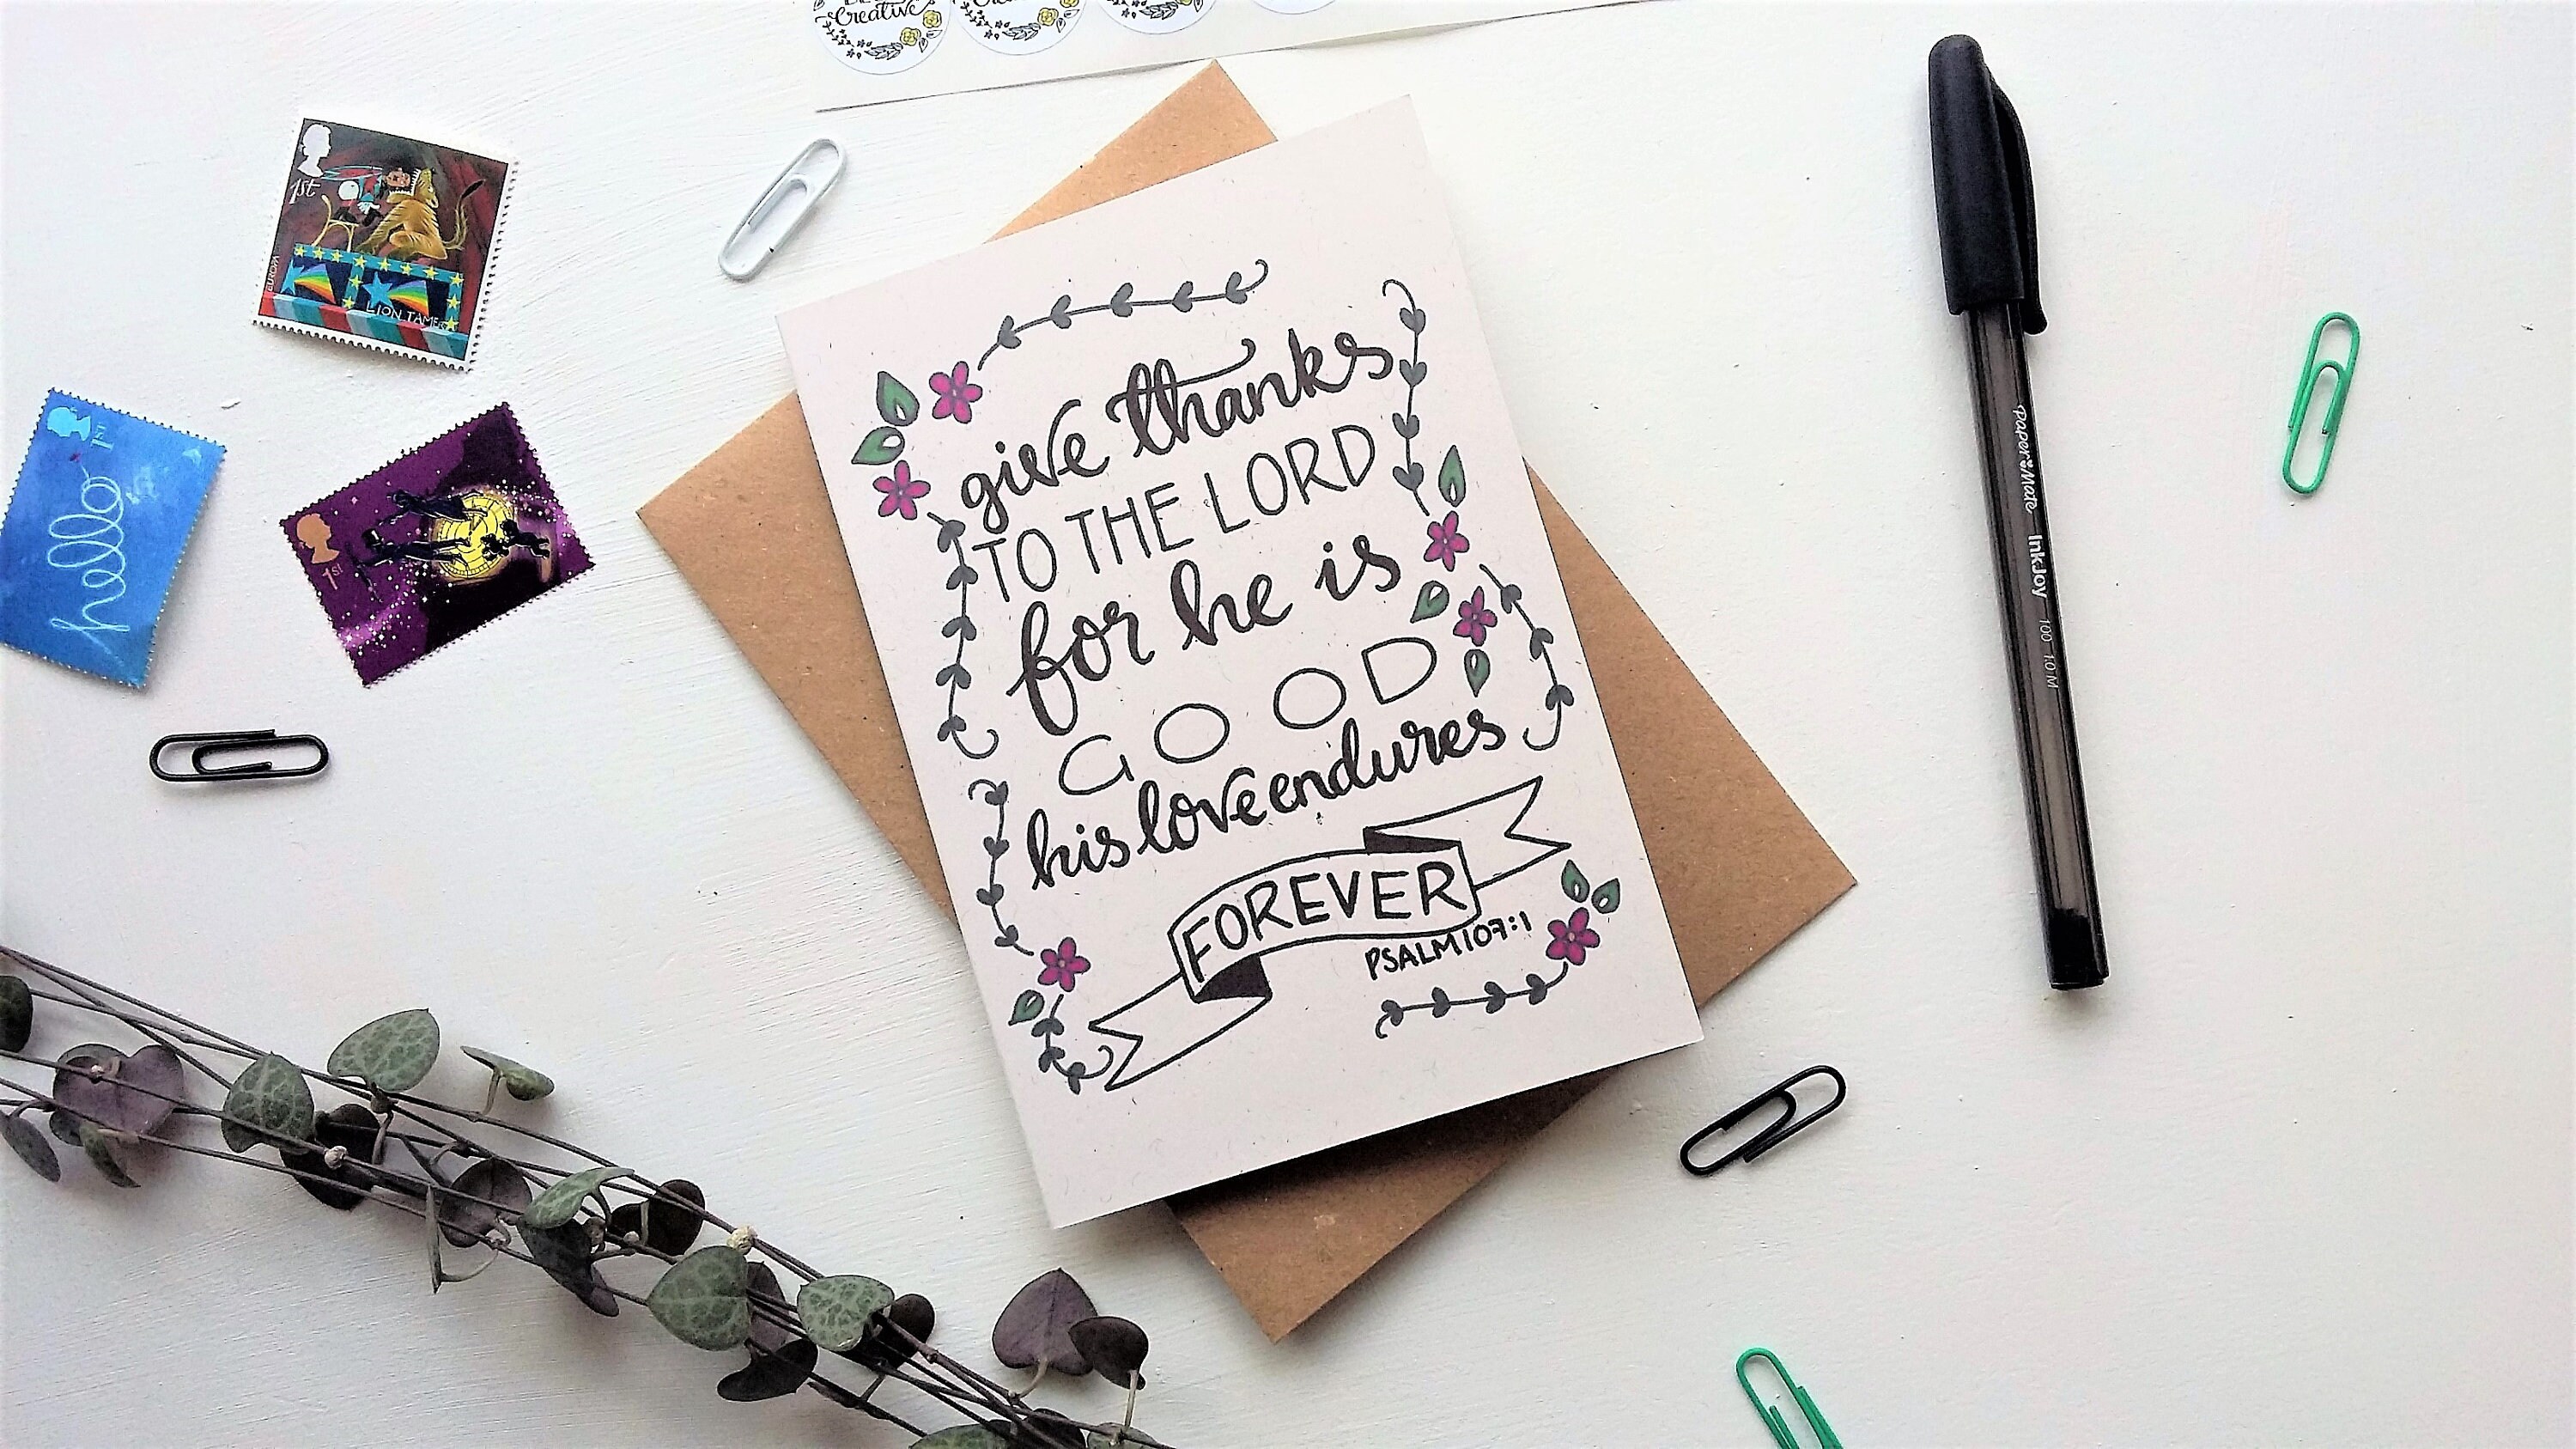 Creative
1st
EUROPA
LION TAMER
1ST
hello
1st
give thanks
TO THE LORD
for he is
GOOD
his love endures
FOREVER
PSALM 107:1
Paper Mate InkJoy 100 1.0 M